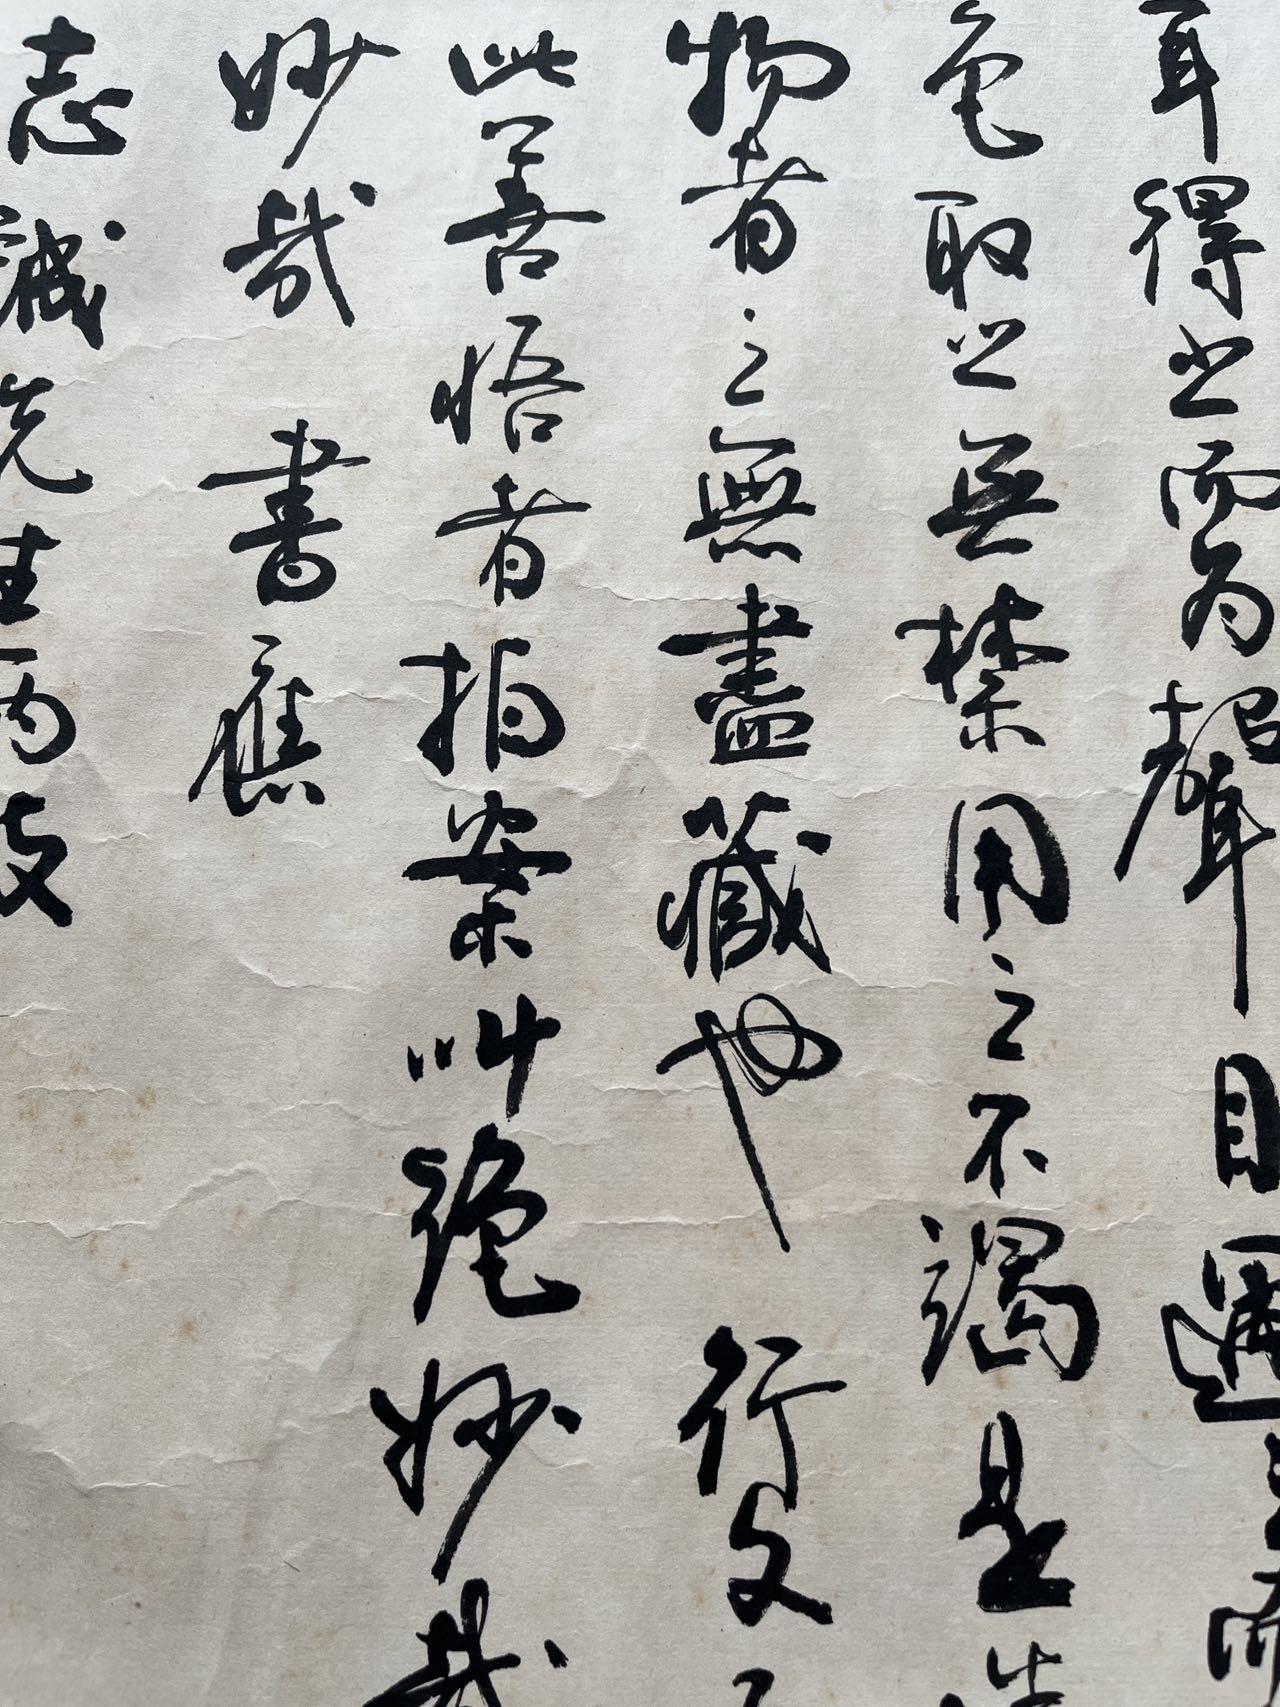 耳得之而為聲目遇之而
色取之無禁用之不竭是造
物者之無盡藏也行文
此善悟者拍案叫絕妙哉
妙哉書應
志誠先生兩政